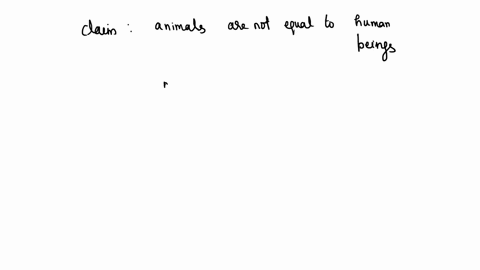 claim : animals are not equal to human
beings